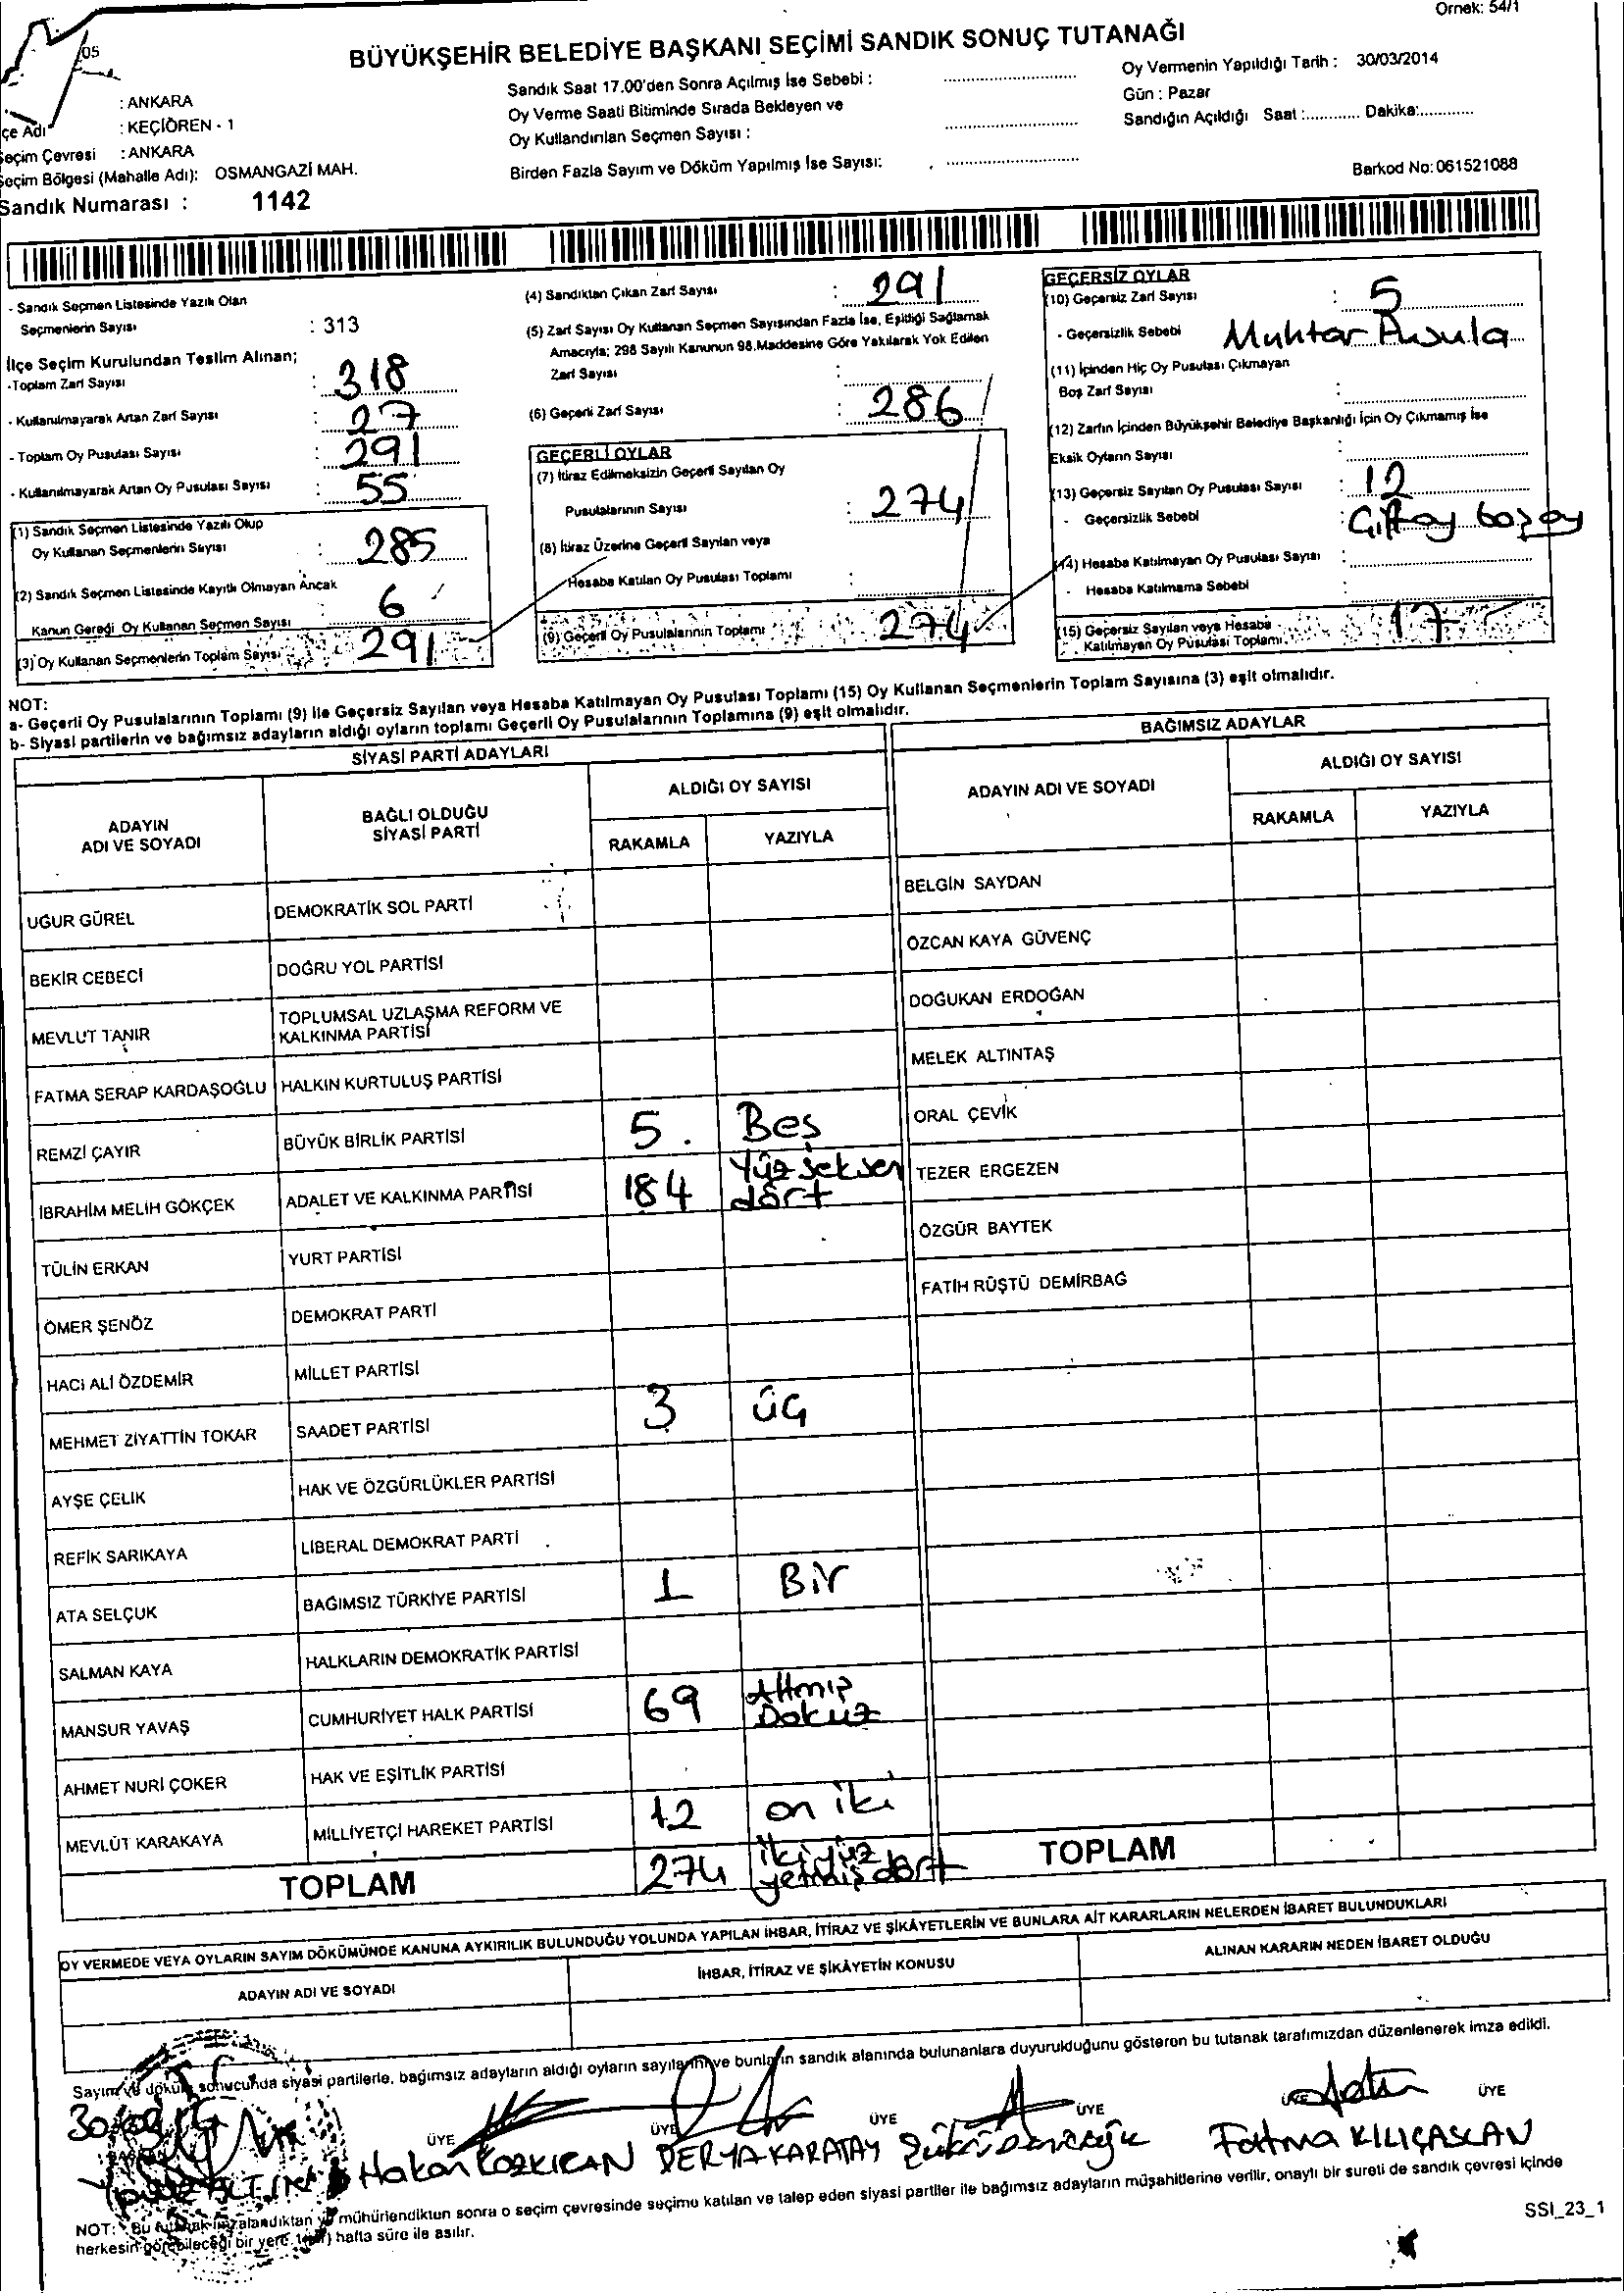 Örnek: 54/1
BÜYÜKŞEHİR BELEDİYE BAŞKANI SEÇİMİ SANDIK SONUÇ TUTANAĞI
05
: ANKARA
çe Adı : KEÇİÖREN - 1
Seçim Çevresi : ANKARA
Seçim Bölgesi (Mahalle Adı): OSMANGAZİ MAH.
Sandık Numarası : 1142
Sandık Saat 17.00'den Sonra Açılmış İse Sebebi :
Oy Verme Saati Bitiminde Sırada Bekleyen ve
Oy Kullandırılan Seçmen Sayısı :
Birden Fazla Sayım ve Döküm Yapılmış İse Sayısı:
Oy Vermenin Yapıldığı Tarih : 30/03/2014
Gün : Pazar
Sandığın Açıldığı Saat :............ Dakika:............
Barkod No: 061521088
- Sandık Seçmen Listesinde Yazılı Olan
Seçmenlerin Sayısı : 313
İlçe Seçim Kurulundan Teslim Alınan;
-Toplam Zarf Sayısı : 318
- Kullanılmayarak Artan Zarf Sayısı : 27
- Toplam Oy Pusulası Sayısı : 291
- Kullanılmayarak Artan Oy Pusulası Sayısı : 55
(1) Sandık Seçmen Listesinde Yazılı Olup
Oy Kullanan Seçmenlerin Sayısı : 285
(2) Sandık Seçmen Listesinde Kayıtlı Olmayan Ancak
Kanun Gereği Oy Kullanan Seçmen Sayısı : 6
(3) Oy Kullanan Seçmenlerin Toplam Sayısı : 291
(4) Sandıktan Çıkan Zarf Sayısı : 291
(5) Zarf Sayısı Oy Kullanan Seçmen Sayısından Fazla İse, Eşitliği Sağlamak
Amacıyla; 298 Sayılı Kanunun 98.Maddesine Göre Yakılarak Yok Edilen
Zarf Sayısı :
(6) Geçerli Zarf Sayısı : 286
GEÇERLİ OYLAR
(7) İtiraz Edilmeksizin Geçerli Sayılan Oy
Pusulalarının Sayısı : 274
(8) İtiraz Üzerine Geçerli Sayılan veya
Hesaba Katılan Oy Pusulası Toplamı :
(9) Geçerli Oy Pusulalarının Toplamı : 274
GEÇERSİZ OYLAR
(10) Geçersiz Zarf Sayısı : 5
- Geçersizlik Sebebi Muhtar Pusula
(11) İçinden Hiç Oy Pusulası Çıkmayan
Boş Zarf Sayısı :
(12) Zarfın İçinden Büyükşehir Belediye Başkanlığı İçin Oy Çıkmamış İse
Eksik Oyların Sayısı :
(13) Geçersiz Sayılan Oy Pusulası Sayısı : 12
- Geçersizlik Sebebi : Çift oy boş oy
(14) Hesaba Katılmayan Oy Pusulası Sayısı :
- Hesaba Katılmama Sebebi :
(15) Geçersiz Sayılan veya Hesaba
Katılmayan Oy Pusulası Toplamı : 17
NOT:
a- Geçerli Oy Pusulalarının Toplamı (9) ile Geçersiz Sayılan veya Hesaba Katılmayan Oy Pusulası Toplamı (15) Oy Kullanan Seçmenlerin Toplam Sayısına (3) eşit olmalıdır.
b- Siyasi partilerin ve bağımsız adayların aldığı oyların toplamı Geçerli Oy Pusulalarının Toplamına (9) eşit olmalıdır.
SİYASİ PARTİ ADAYLARI
ADAYIN ADI VE SOYADI BAĞLI OLDUĞU SİYASİ PARTİ ALDIĞI OY SAYISI
RAKAMLA YAZIYLA
UĞUR GÜREL DEMOKRATİK SOL PARTİ
BEKİR CEBECİ DOĞRU YOL PARTİSİ
MEVLUT TANIR TOPLUMSAL UZLAŞMA REFORM VE KALKINMA PARTİSİ
FATMA SERAP KARDAŞOĞLU HALKIN KURTULUŞ PARTİSİ
REMZİ ÇAYIR BÜYÜK BİRLİK PARTİSİ 5 Beş
İBRAHİM MELİH GÖKÇEK ADALET VE KALKINMA PARTİSİ 184 Yüz seksen dört
TÜLİN ERKAN YURT PARTİSİ
ÖMER ŞENÖZ DEMOKRAT PARTİ
HACI ALİ ÖZDEMİR MİLLET PARTİSİ
MEHMET ZİYATTİN TOKAR SAADET PARTİSİ 3 üç
AYŞE ÇELİK HAK VE ÖZGÜRLÜKLER PARTİSİ
REFİK SARIKAYA LİBERAL DEMOKRAT PARTİ
ATA SELÇUK BAĞIMSIZ TÜRKİYE PARTİSİ 1 Bir
SALMAN KAYA HALKLARIN DEMOKRATİK PARTİSİ
MANSUR YAVAŞ CUMHURİYET HALK PARTİSİ 69 Altmış Dokuz
AHMET NURİ ÇOKER HAK VE EŞİTLİK PARTİSİ
MEVLÜT KARAKAYA MİLLİYETÇİ HAREKET PARTİSİ 12 on iki
TOPLAM 274 iki yüz yetmiş dört
BAĞIMSIZ ADAYLAR
ADAYIN ADI VE SOYADI ALDIĞI OY SAYISI
RAKAMLA YAZIYLA
BELGİN SAYDAN
ÖZCAN KAYA GÜVENÇ
DOĞUKAN ERDOĞAN
MELEK ALTINTAŞ
ORAL ÇEVİK
TEZER ERGEZEN
ÖZGÜR BAYTEK
FATİH RÜŞTÜ DEMİRBAĞ
TOPLAM
OY VERMEDE VEYA OYLARIN SAYIM DÖKÜMÜNDE KANUNA AYKIRILIK BULUNDUĞU YOLUNDA YAPILAN İHBAR, İTİRAZ VE ŞİKÂYETLERİN VE BUNLARA AİT KARARLARIN NELERDEN İBARET BULUNDUKLARI
ADAYIN ADI VE SOYADI İHBAR, İTİRAZ VE ŞİKÂYETİN KONUSU ALINAN KARARIN NEDEN İBARET OLDUĞU
Sayım ve döküm sonucunda siyasi partilerle, bağımsız adayların aldığı oyların sayılarını ve bunların sandık alanında bulunanlara duyurulduğunu gösteren bu tutanak tarafımızdan düzenlenerek imza edildi.
ÜYE ÜYE ÜYE ÜYE ÜYE
Hakan KOZKIRAN DERYA KARATAY Fatma KILIÇASLAN
NOT: Bu tutanak imzalandıktan ve mühürlendikten sonra o seçim çevresinde seçime katılan ve talep eden siyasi partiler ile bağımsız adayların müşahitlerine verilir, onaylı bir sureti de sandık çevresi içinde
herkesin görebileceği bir yere 1 (bir) hafta süre ile asılır.
SSI_23_1